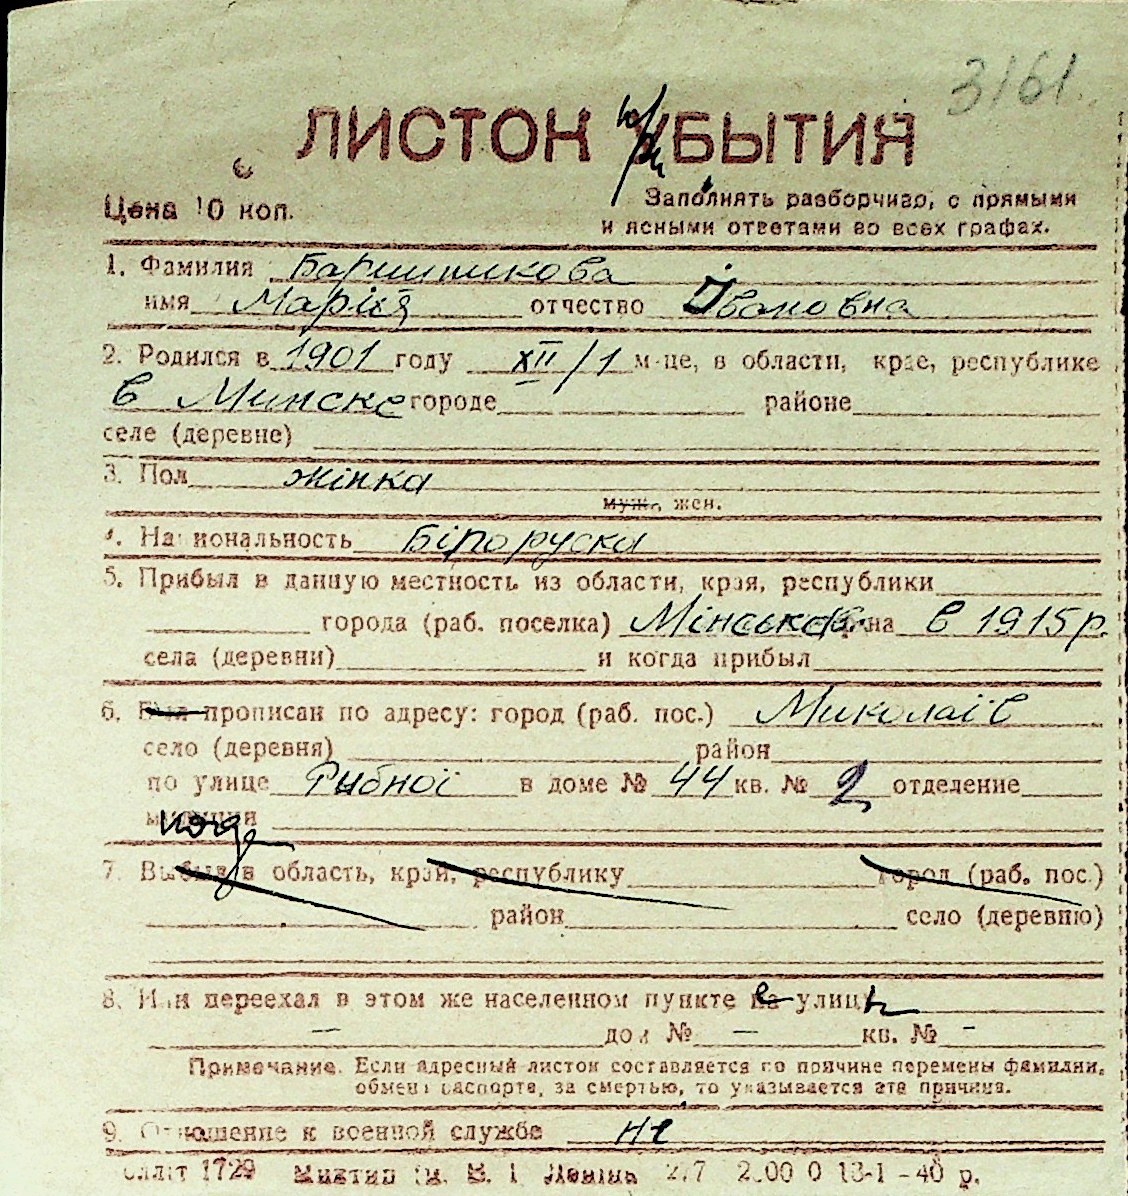 3161.
ЛИСТОК УБЫТИЯ
Цена 10 коп.
Заполнять разборчиво, с прямыми
и ясными ответами во всех графах.
1. Фамилия
имя Марія отчество Івановна
2. Родился в 1901 году XII/1 м-це, в области, крае, республике
в Минске городе районе
селе (деревне)
3. Пол жінка
муж., жен.
4. Национальность Білоруска
5. Прибыл в данную местность из области, края, республики
города (раб. поселка) района в 1915 р.
села (деревни) и когда прибыл
6. Был прописан по адресу: город (раб. пос.) Миколаїв
село (деревня) район
по улице Рибної в доме № 44 кв. № 2 отделение
милиции
7. Выбыл в область, край, республику город (раб. пос.)
район село (деревню)
8. Или переехал в этом же населенном пункте на улицу
— дом № — кв. № -
Примечание. Если адресный листок составляется по причине перемены фамилии,
обмена паспорта, за смертью, то указывается эта причина.
9. Отношение к военной службе не
1729 В. І. Леніна 13-1-40 р.